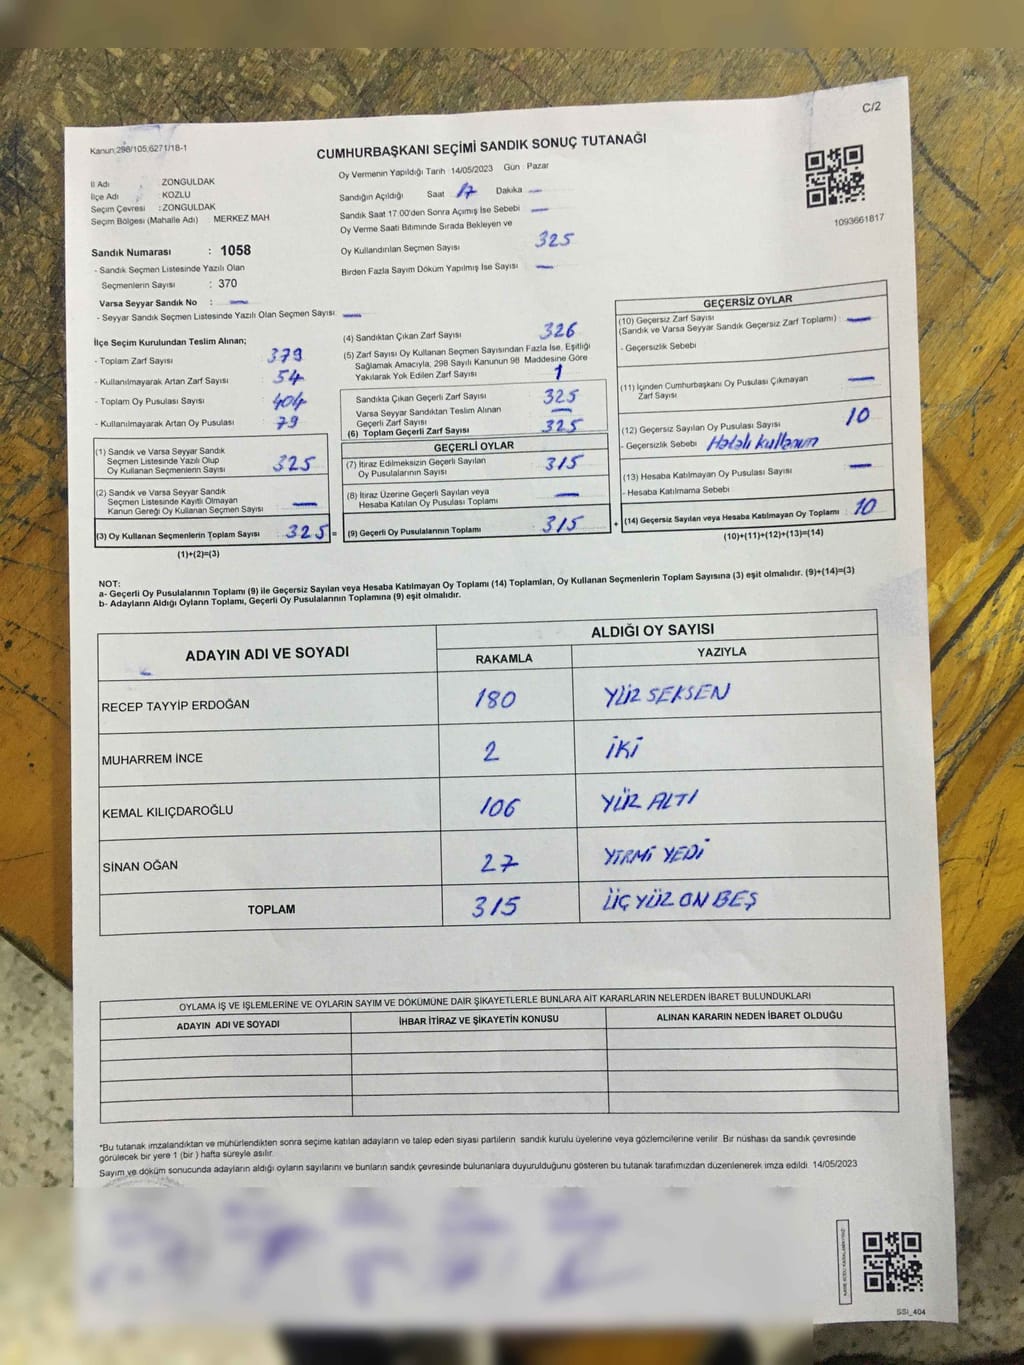 C/2
Kanun;298/105;6271/18-1
CUMHURBAŞKANI SEÇİMİ SANDIK SONUÇ TUTANAĞI
İl Adı : ZONGULDAK
İlçe Adı : KOZLU
Seçim Çevresi : ZONGULDAK
Seçim Bölgesi (Mahalle Adı) MERKEZ MAH
Sandık Numarası : 1058
- Sandık Seçmen Listesinde Yazılı Olan
Seçmenlerin Sayısı : 370
Varsa Seyyar Sandık No : —
- Seyyar Sandık Seçmen Listesinde Yazılı Olan Seçmen Sayısı: —
Oy Vermenin Yapıldığı Tarih 14/05/2023 Gün Pazar
Sandığın Açıldığı Saat 17 Dakika —
Sandık Saat 17.00'den Sonra Açımış İse Sebebi —
Oy Verme Saati Bitiminde Sırada Bekleyen ve
Oy Kullandırılan Seçmen Sayısı 325
Birden Fazla Sayım Döküm Yapılmış İse Sayısı —
1093661817
İlçe Seçim Kurulundan Teslim Alınan;
- Toplam Zarf Sayısı 379
- Kullanılmayarak Artan Zarf Sayısı 54
- Toplam Oy Pusulası Sayısı 404
- Kullanılmayarak Artan Oy Pusulası 79
(1) Sandık ve Varsa Seyyar Sandık
Seçmen Listesinde Yazılı Olup
Oy Kullanan Seçmenlerin Sayısı 325
(2) Sandık ve Varsa Seyyar Sandık
Seçmen Listesinde Kayıtlı Olmayan
Kanun Gereği Oy Kullanan Seçmen Sayısı —
(3) Oy Kullanan Seçmenlerin Toplam Sayısı 325 =
(1)+(2)=(3)
(4) Sandıktan Çıkan Zarf Sayısı 326
(5) Zarf Sayısı Oy Kullanan Seçmen Sayısından Fazla İse, Eşitliği
Sağlamak Amacıyla, 298 Sayılı Kanunun 98 Maddesine Göre
Yakılarak Yok Edilen Zarf Sayısı 1
Sandıkta Çıkan Geçerli Zarf Sayısı 325
Varsa Seyyar Sandıktan Teslim Alınan
Geçerli Zarf Sayısı —
(6) Toplam Geçerli Zarf Sayısı 325
GEÇERLİ OYLAR
(7) İtiraz Edilmeksizin Geçerli Sayılan
Oy Pusulalarının Sayısı 315
(8) İtiraz Üzerine Geçerli Sayılan veya
Hesaba Katılan Oy Pusulası Toplamı —
(9) Geçerli Oy Pusulalarının Toplamı 315 +
GEÇERSİZ OYLAR
(10) Geçersiz Zarf Sayısı
(Sandık ve Varsa Seyyar Sandık Geçersiz Zarf Toplamı) —
- Geçersizlik Sebebi
(11) İçinden Cumhurbaşkanı Oy Pusulası Çıkmayan
Zarf Sayısı —
(12) Geçersiz Sayılan Oy Pusulası Sayısı 10
- Geçersizlik Sebebi Hatalı kullanım
(13) Hesaba Katılmayan Oy Pusulası Sayısı —
- Hesaba Katılmama Sebebi
(14) Geçersiz Sayılan veya Hesaba Katılmayan Oy Toplamı 10
(10)+(11)+(12)+(13)=(14)
NOT:
a- Geçerli Oy Pusulalarının Toplamı (9) ile Geçersiz Sayılan veya Hesaba Katılmayan Oy Toplamı (14) Toplamları, Oy Kullanan Seçmenlerin Toplam Sayısına (3) eşit olmalıdır. (9)+(14)=(3)
b- Adayların Aldığı Oyların Toplamı, Geçerli Oy Pusulalarının Toplamına (9) eşit olmalıdır.
ADAYIN ADI VE SOYADI ALDIĞI OY SAYISI
RAKAMLA YAZIYLA
RECEP TAYYİP ERDOĞAN 180 YÜZ SEKSEN
MUHARREM İNCE 2 İKİ
KEMAL KILIÇDAROĞLU 106 YÜZ ALTI
SİNAN OĞAN 27 YİRMİ YEDİ
TOPLAM 315 ÜÇ YÜZ ON BEŞ
OYLAMA İŞ VE İŞLEMLERİNE VE OYLARIN SAYIM VE DÖKÜMÜNE DAİR ŞİKAYETLERLE BUNLARA AİT KARARLARIN NELERDEN İBARET BULUNDUKLARI
ADAYIN ADI VE SOYADI İHBAR İTİRAZ VE ŞİKAYETİN KONUSU ALINAN KARARIN NEDEN İBARET OLDUĞU
*Bu tutanak imzalandıktan ve mühürlendikten sonra seçime katılan adayların ve talep eden siyasi partilerin sandık kurulu üyelerine veya gözlemcilerine verilir. Bir nüshası da sandık çevresinde
görülecek bir yere 1 (bir ) hafta süreyle asılır.
Sayım ve döküm sonucunda adayların aldığı oyların sayılarını ve bunların sandık çevresinde bulunanlara duyurulduğunu gösteren bu tutanak tarafımızdan düzenlenerek imza edildi. 14/05/2023
SSI_404